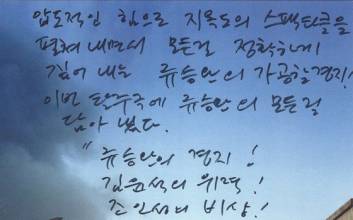 압도적인 힘으로 지옥도의 스펙타클을
펼쳐내면서 모든걸 정확하게
짚어 내는 류승완의 가공할경지!
이번 탈주극에 류승완의 모든걸
담아 냈다.
"류승완의 경지!
김윤석의 위력!
조인성의 비상!